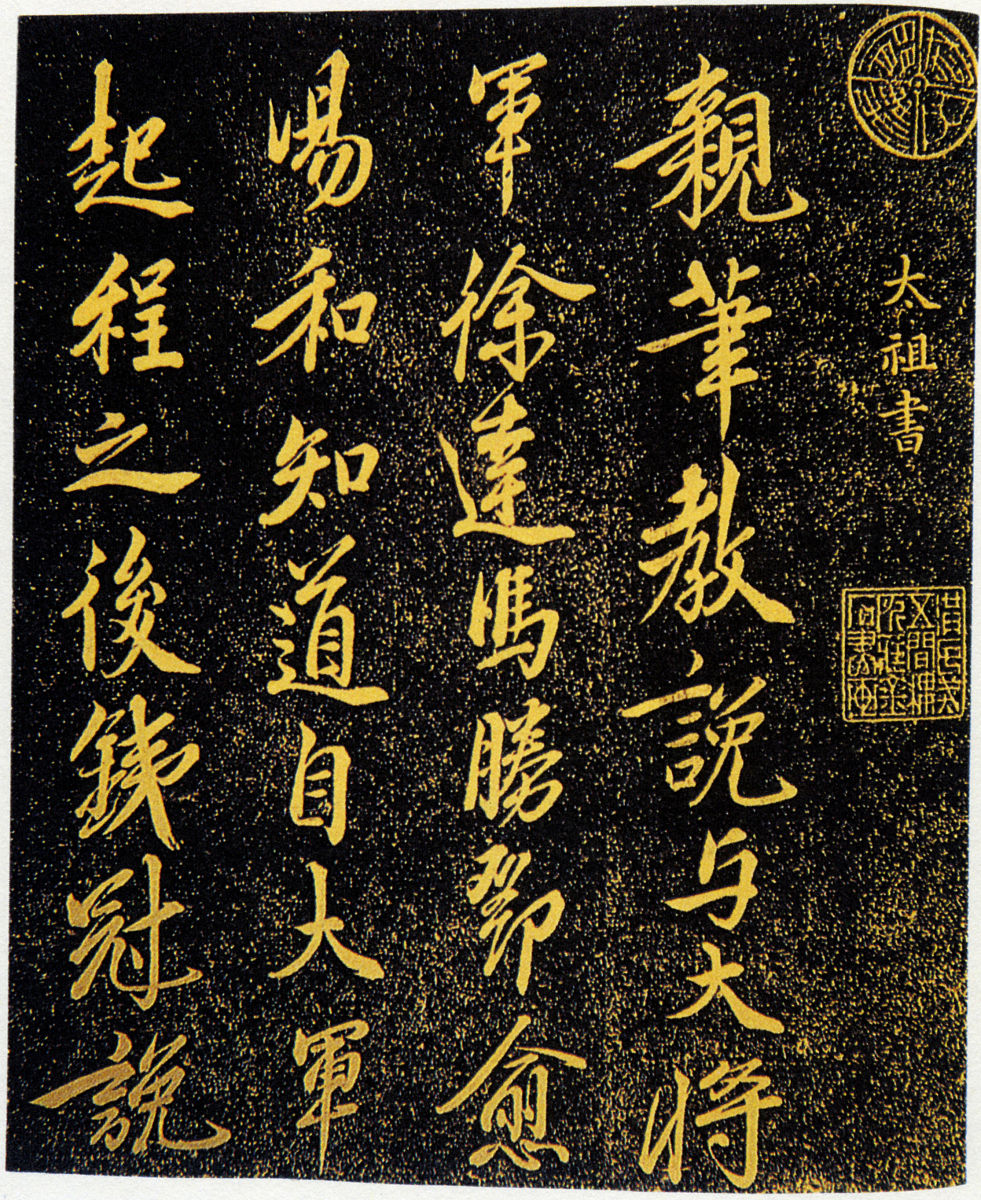 太祖書
親筆教說与大將
軍徐達馮勝鄧愈
湯和知道自大軍
起程之後鉄冠説